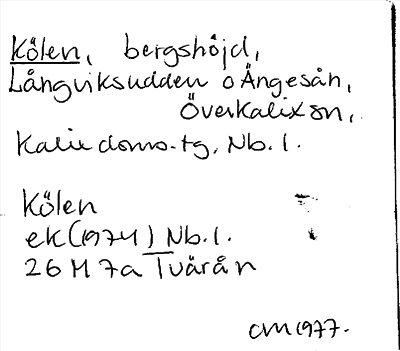 Kölen, bergshöjd,
Långviksudden o Ängesån,
Överkalix sn,
Kalix doms.tg, Nb.l.
Kölen
ek(1974) Nb.l.
26 M 7a Tvärån
CM 1977.